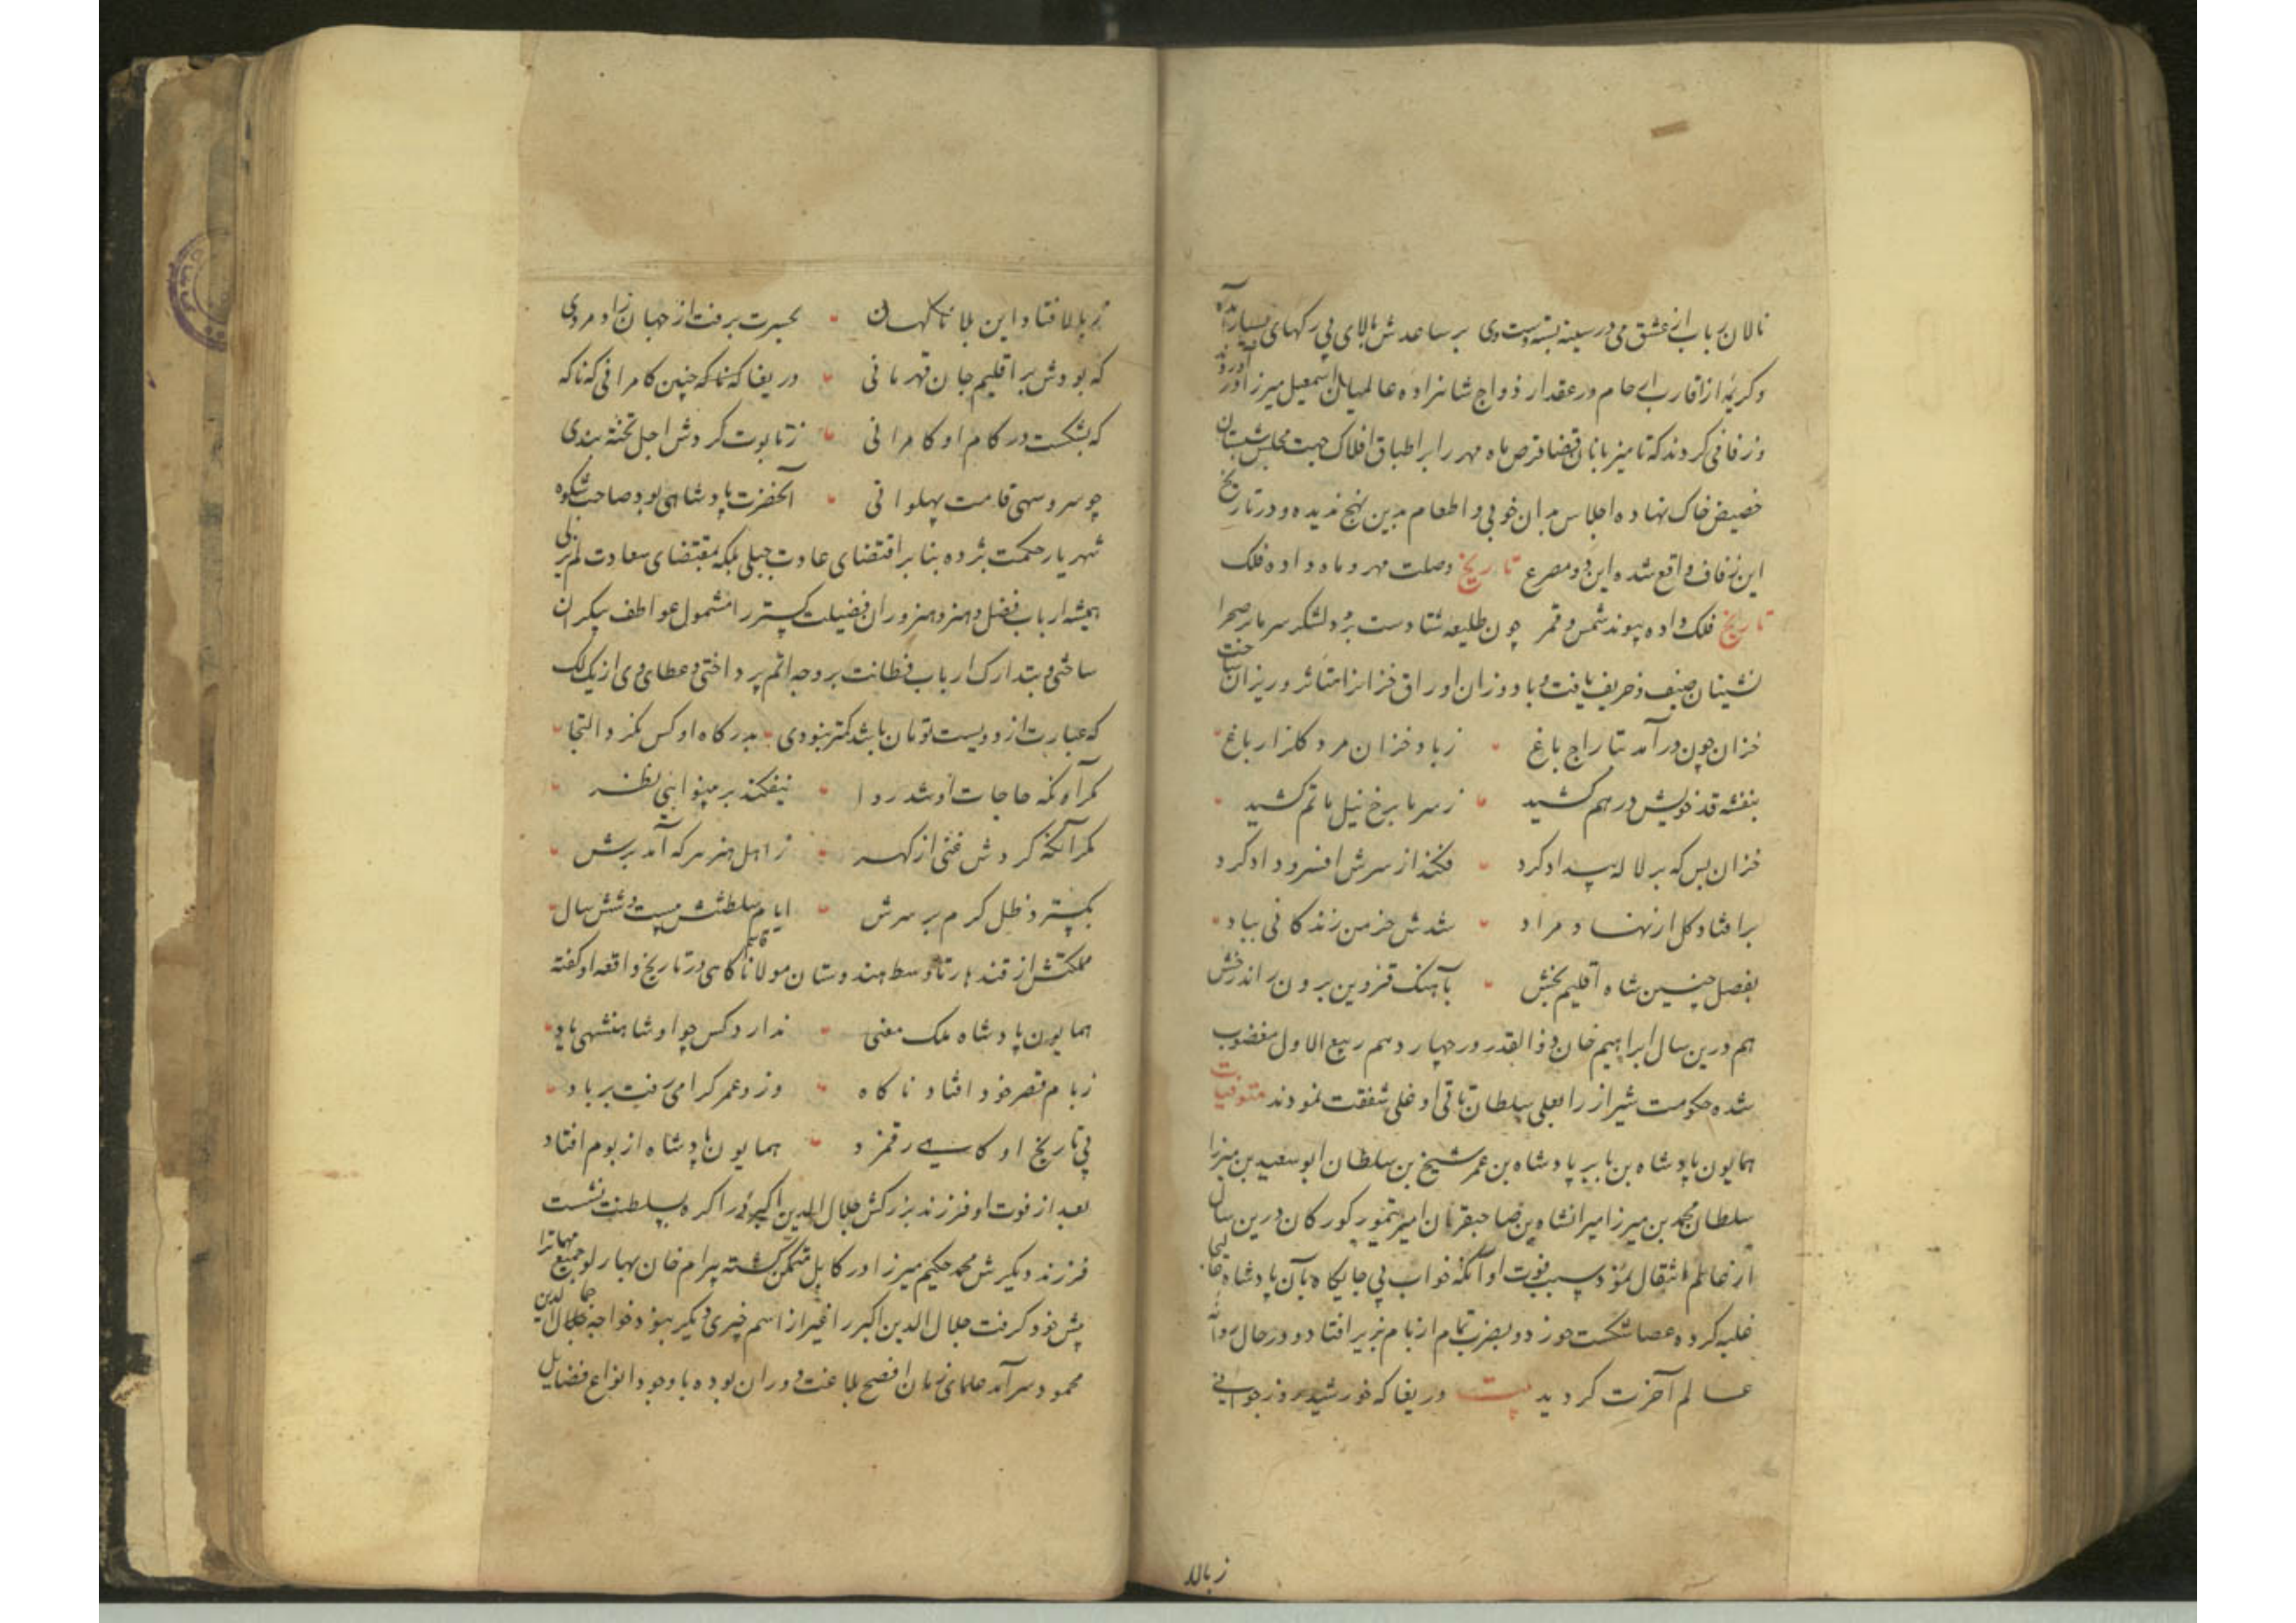 نالان رباب از عشق می در سینه بسته دست وی بر ساعدش بالای پی رگهای بسیار آمده
و کریمه از اقارب ای حام در عقد ازدواج شاهزاده عالمیان اسمعیل میرزا در آوردند
و زفافی کردند که تا میزبانان قضا قرص ماه مهر را بر اطباق افلاک جهت مجلس شبستان
حضیض خاک نهاده اجلاس بدان خوبی و اطعام بدین نهج ندیده و در تاریخ
این زفاف واقع شده این دو مصرع تاریخ وصلت مهر و ماه داده فلک
تاریخ فلک داده پیوند شمس و قمر چون طلیعه شتا دست برد لشکر سرما بر صحرا
نشینان صیف و خریف یافت و باد وزان اوراق خزانرا متاثر و ریزان ساخت
خزان چون درآمد بتاراج باغ ز باد خزان مرد گلزار باغ
بنفشه قد خویش در هم کشید ز سرما برخ نیل ماتم کشید
خزان بس که بر لاله بیداد کرد فکند از سرش افسر و داد کرد
بر افتاد گل از نهاد مراد شدش خرمن زندگانی بباد
بفصل چنین شاه اقلیم بخش بآهنک قزوین برون راند رخش
هم درین سال ابراهیم خان ذو القدر در چهاردهم ربیع الاول مغضوب
شده حکومت شیراز را بعلی سلطان تاتی اوغلی شفقت نمودند متوفیات
همایون پادشاه بن بابر پادشاه بن عمر شیخ بن سلطان ابو سعید بن میرزا
سلطان محمد بن میرزا میرانشاه بن صاحبقران امیر تیمور کورکان درین سال
از عالم انتقال نمود سبب فوت او آنکه خواب بی جایگاه بآن پادشاه عالیجاه
غلبه کرده عصا شکست خورد و بضرب تمام از بام بزیر افتاد و در حال روانه
عالم آخرت گردید بیت دریغا که خورشید روز جوانی
ز بالا
ز بالا فتاد این بلا ناگهان بحسرت برفت از جهان زاد مردی
که بودش بر اقلیم جان قهرمانی دریغا که ناگه چنین کامرانی که ناگه
که بشکست در کام او کامرانی ز تابوت کردش اجل تخته بندی
چو سرو سهی قامت پهلوانی آنحضرت پادشاهی بود صاحب شکوه
شهریار حکمت پژوه بنا بر اقتضای عادت جبلی بلکه بمقتضای سعادت لم یزلی
همیشه ارباب فضل و هنر و هنروران فضیلت گستر را مشمول عواطف بیکران
ساختی و بتدارک ارباب فطانت بر وجه اتم پرداختی و عطای وی از یک لک
که عبارت از دویست تومان باشد کمتر نبودی بدرگاه او کس نکرد التجا
مگر آنکه حاجات او شد روا نیفکند بر بینوایی نظر
مگر آنکه کردش غنی از گهر ز اهل هنر هر که آمد برش
بگسترد ظل کرم بر سرش ایام سلطنتش بیست و شش سال
مملکتش از قندهار تا وسط هندوستان مولانا قاسم کاهی در تاریخ واقعه او گفته
همایون پادشاه ملک معنی ندارد کس چو او شاهنشهی یاد
ز بام قصر خود افتاد ناگاه وزو عمر گرامی رفت بر باد
پی تاریخ او کاهی رقم زد همایون پادشاه از بوم افتاد
بعد از فوت او فرزند بزرگش جلال الدین اکبر در اگره بسلطنت نشست
فرزند دیگرش محمد حکیم میرزا در کابل متمکن گشته بیرام خان بهارلو جمیع مهماترا
پیش خود گرفت جلال الدین اکبر را غیر از اسم چیزی دیگر نبود خواجه جمال الدین
محمود سرآمد علمای زمان افصح بلاغت دوران بوده با وجود انواع فضایل